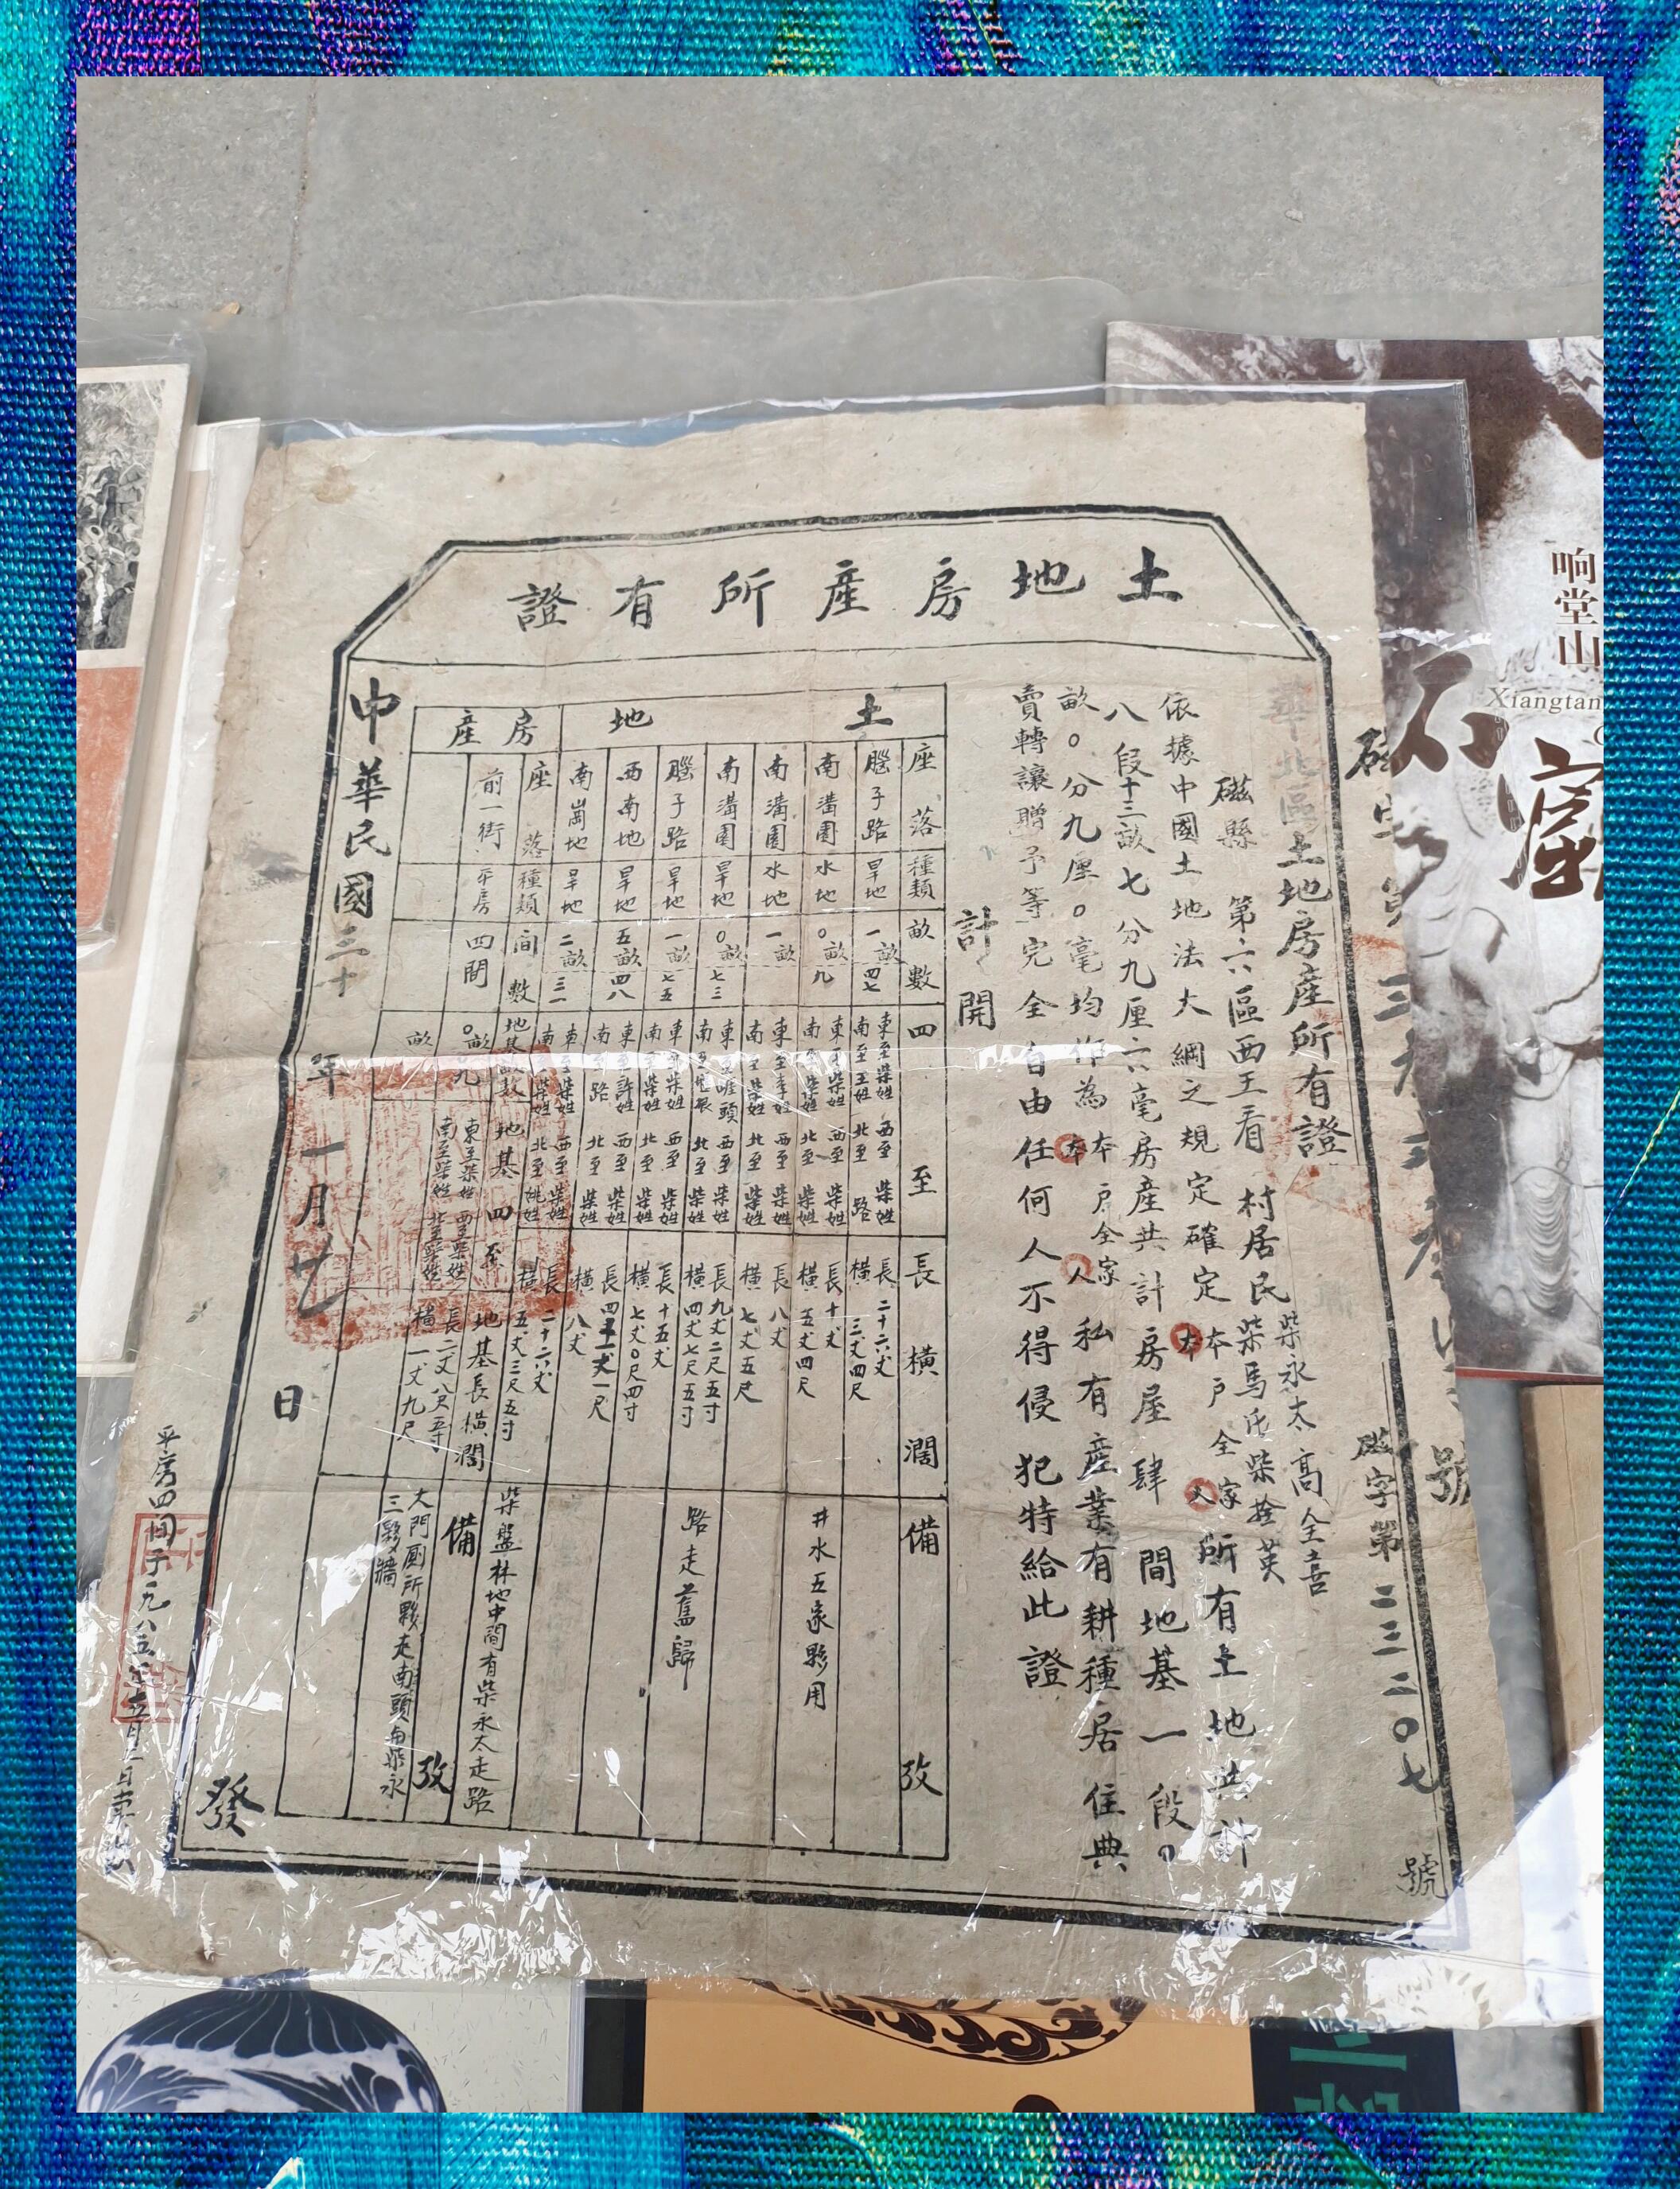 土地房產所有證
華北區土地房產所有證
磁縣 第六區西王看 村居民柴永太 高全喜
柴馬氏柴拴英
依據中國土地法大綱之規定確定本戶全家所有土地共計
八段十三畝七分九厘六毫房產共計房屋肆間地基一段〇
畝〇分九厘〇毫均作為本戶全家私有產業有耕種居住典
賣轉讓贈予等完全自由任何人不得侵犯特給此證
計開
土地
座落 種類 畝數 四至 長橫濶 備攷
腦子路 旱地 一畝四七 東至柴姓 西至柴姓 南至王姓 北至路 長二十六丈 橫三丈四尺
南溝園 水地 〇畝九 東至柴姓 西至柴姓 南至柴姓 北至柴姓 長十丈 橫五丈四尺 井水五家夥用
南溝園 水地 一畝 東至李姓 西至柴姓 南至柴姓 北至柴姓 長八丈 橫七丈五尺
南溝園 旱地 〇畝七三 東至崖頭 西至柴姓 南至崖根 北至柴姓 長九丈二尺五寸 橫四丈七尺五寸 路走舊歸
腦子路 旱地 一畝七五 東至柴姓 西至柴姓 南至柴姓 北至柴姓 長十五丈 橫七丈〇尺四寸
西南地 旱地 五畝四八 東至許姓 西至柴姓 南至路 北至柴姓 長四十一丈一尺 橫八丈
南崗地 旱地 二畝三一 東至柴姓 西至柴姓 南至柴姓 北至姚姓 長二十六丈 橫五丈三尺五寸 柴盤林地中間有柴永太走路
房產
座落 種類 間數 地基畝數 地基四至 地基長橫濶 備攷
前一街 平房 四間 〇畝〇九 東至柴姓 西至柴姓 南至柴姓 北至柴姓 長二丈八尺五寸 橫一丈九尺 大門厠所夥走南頭與柴永
三夥牆
畝
中華民國三十 年一月廿 日
發
磁字第二三二〇七號
平房四間于一九八五年
响堂山
石窟
Xiangtan